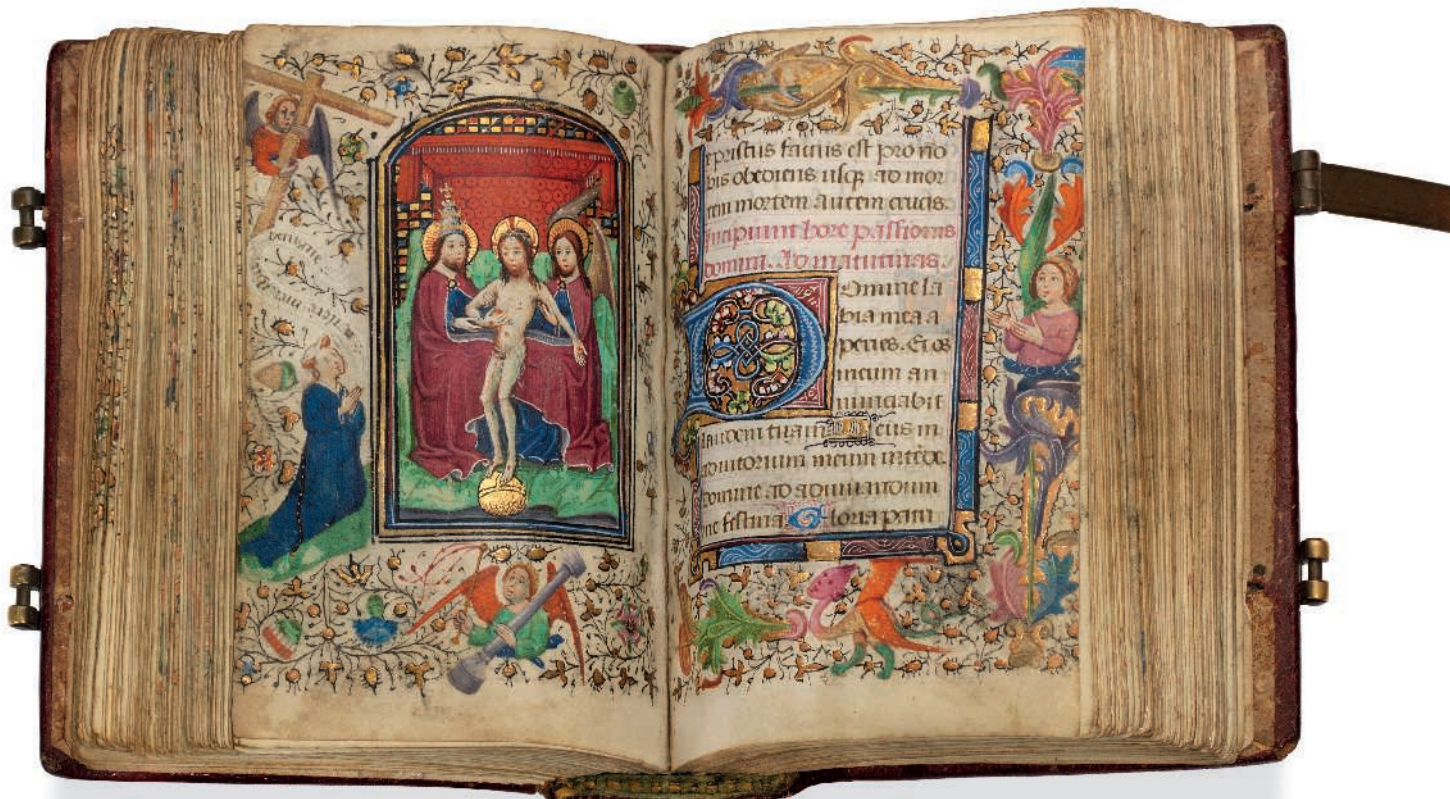 Christus factus est pro no
bis obediens usq; ad mor
tem mortem autem crucis.
Incipiunt hore passionis
domini. Ad matutinas.
Domine la
bia mea a
peries. Et os
meum an
nunciabit
laudem tuam Deus in
adiutorium meum intede.
domine ad adiuuandum
me festina Gloria patri